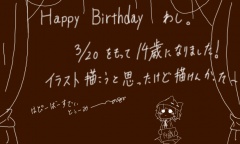 Happy Birthday わし。
3/20 をもって 14歳になりました!
イラスト描こうと思ったけど描けんかった〜
はっぴーばーすでい
とぅーみー